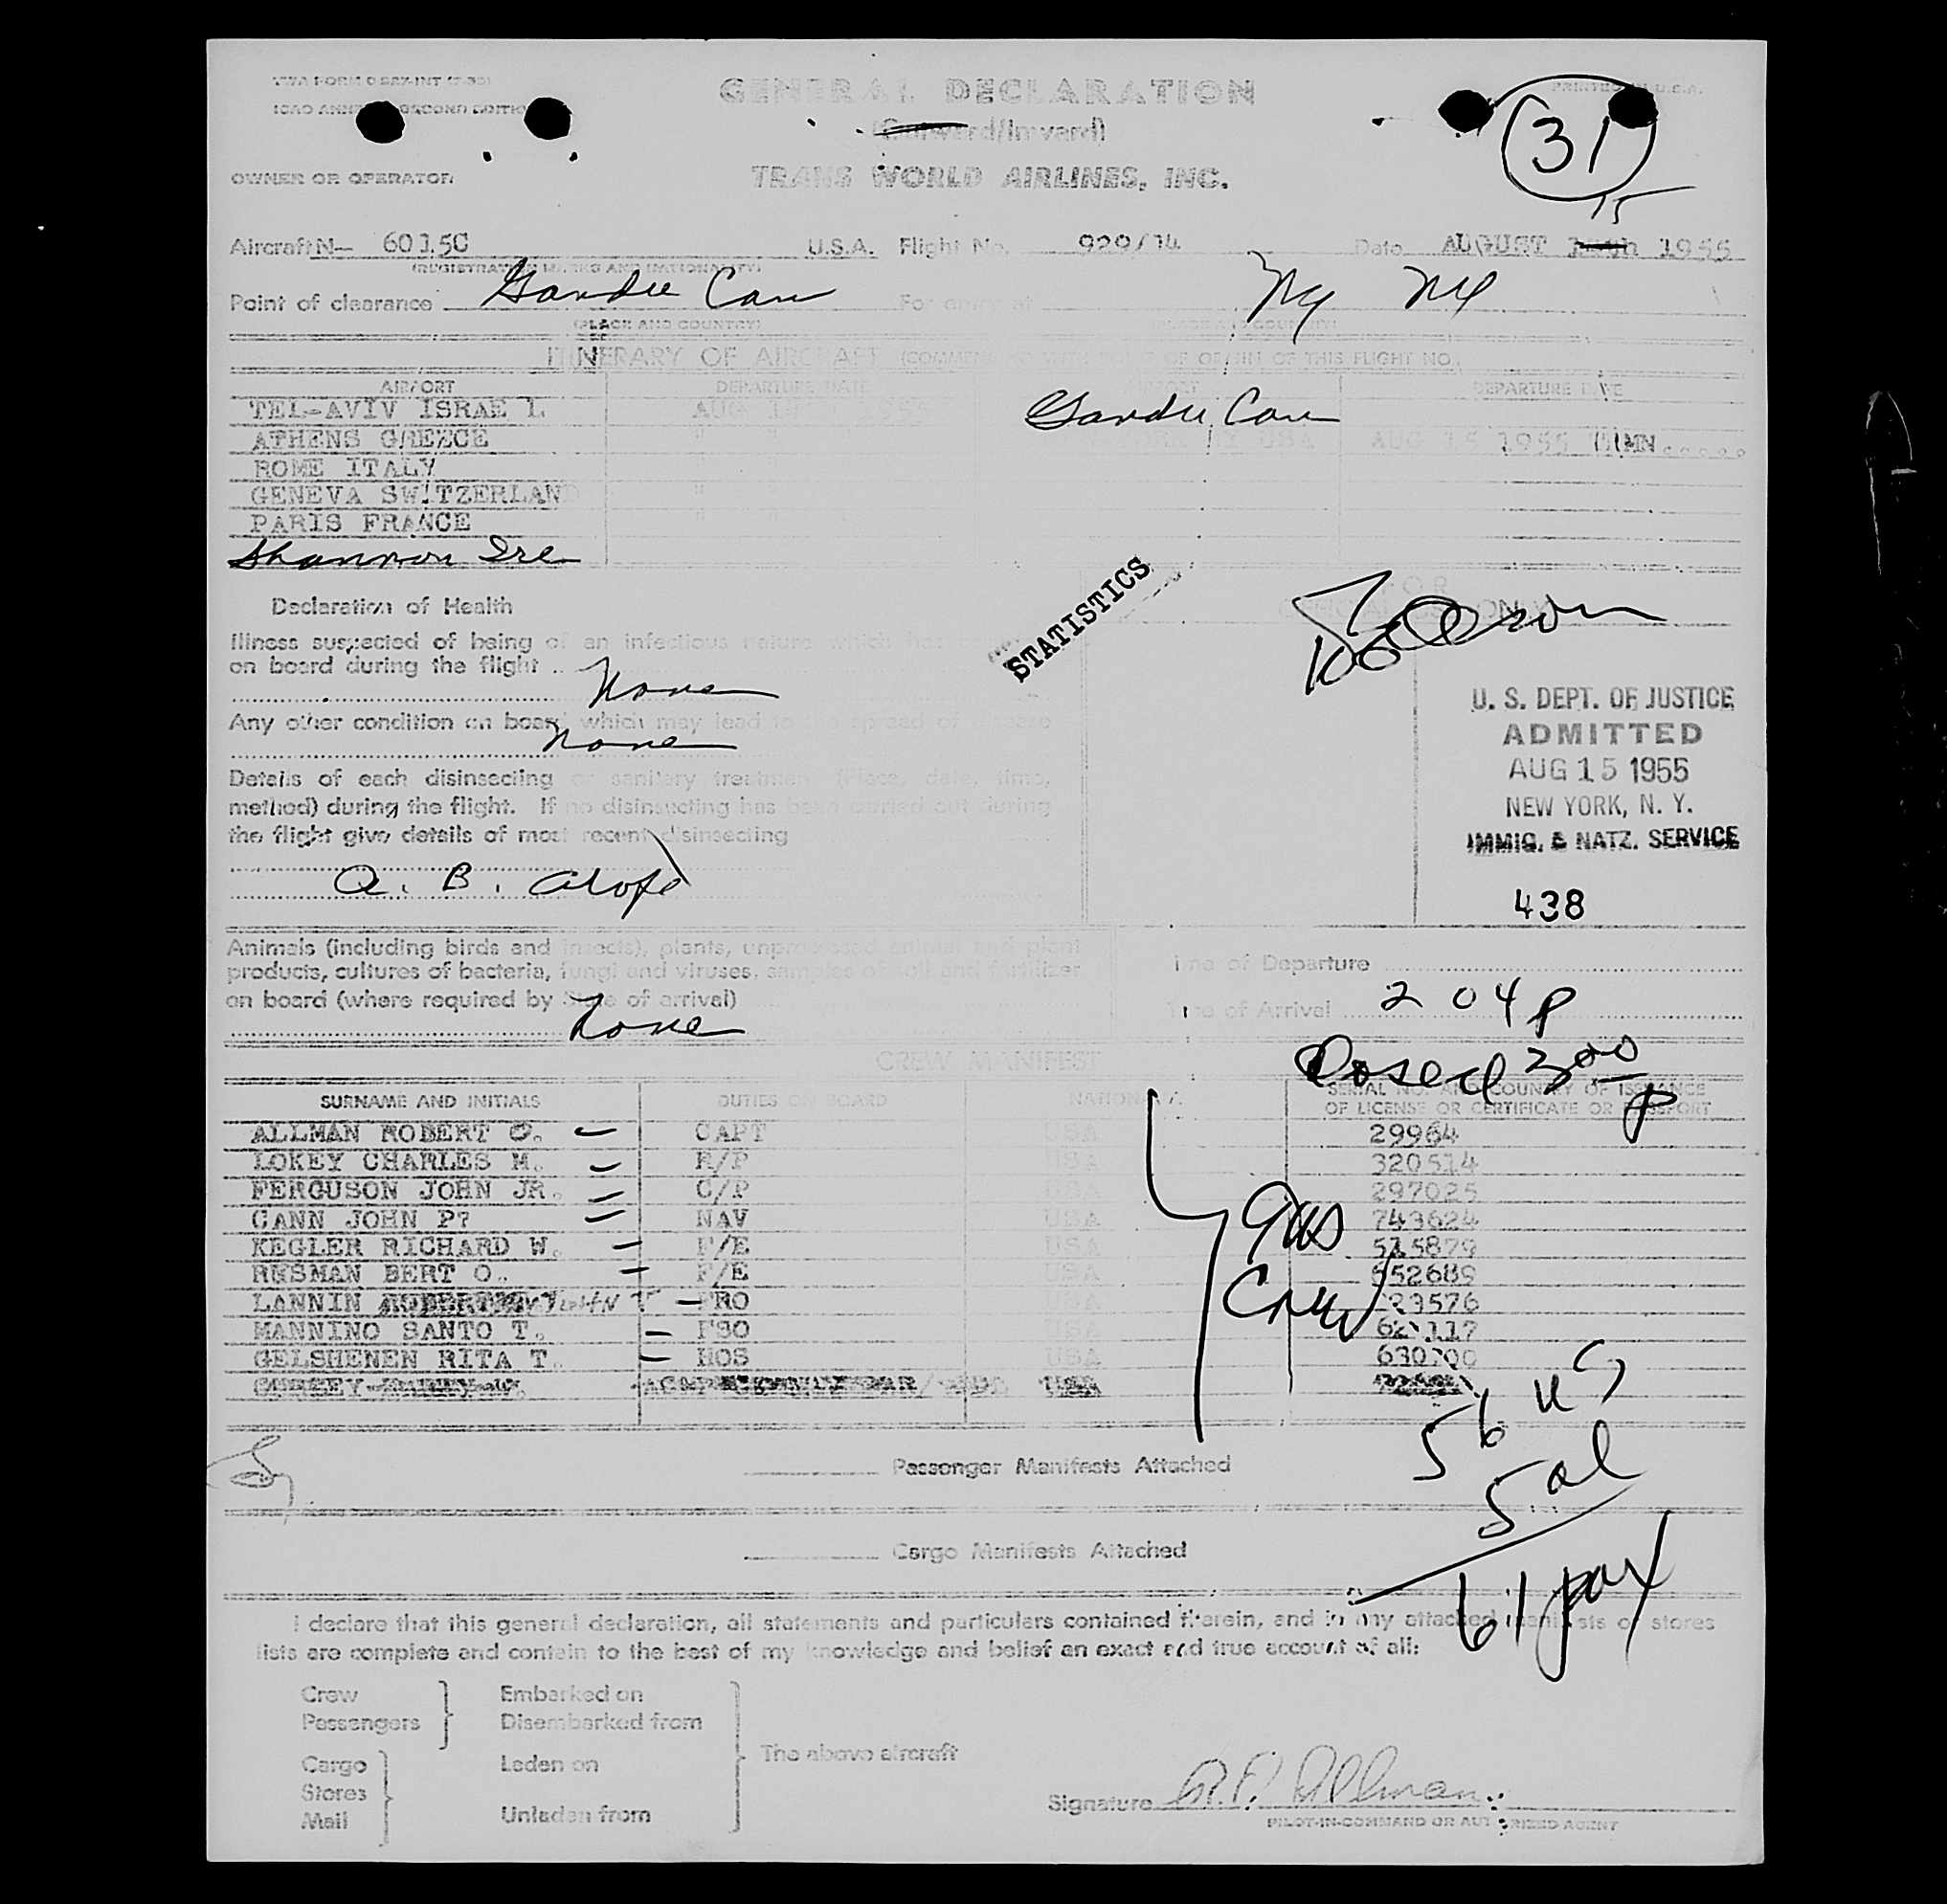 GENERAL DECLARATION
(Outward/Inward)
PRINTED IN U.S.A.
31
OWNER OR OPERATOR
TRANS WORLD AIRLINES, INC.
15
Aircraft N— 6015C U.S.A. Flight No. 929/14 Date AUGUST 1955
(REGISTRATION MARKS AND NATIONALITY)
Point of clearance Gander Can For entry at NY NY
(PLACE AND COUNTRY)
ITINERARY OF AIRCRAFT OF ORIGIN OF THIS FLIGHT NO.
AIRPORT DEPARTURE DATE DEPARTURE DATE
TEL-AVIV ISRAEL AUG Gander Can
ATHENS GREECE " " USA AUG 15 1955
ROME ITALY
GENEVA SWITZERLAND "
PARIS FRANCE " "
Shannon Ire
STATISTICS
Declaration of Health
Illness suspected of being of an infectious nature which has
on board during the flight ..
None
Any other condition on board which may lead to the spread of disease
None
Details of each disinsecting or sanitary treatment (Place, date, time,
method) during the flight. If no disinsecting has been carried out during
the flight give details of most recent disinsecting
FOR
OFFICIAL USE ONLY
U. S. DEPT. OF JUSTICE
ADMITTED
AUG 15 1955
NEW YORK, N. Y.
IMMIG. & NATZ. SERVICE
438
Animals (including birds and insects), plants, unprocessed animal and plant
products, cultures of bacteria, fungi and viruses, samples of soil and fertilizer
on board (where required by State of arrival)
None
Time of Departure
Time of Arrival 2 04 P
Closed 3 00 P
CREW MANIFEST
SURNAME AND INITIALS DUTIES ON BOARD NATIONALITY SERIAL NO. AND COUNTRY OF ISSUANCE
OF LICENSE OR CERTIFICATE OR PASSPORT
ALLMAN ROBERT CAPT USA 29964
LOKEY CHARLES M. R/P USA 320514
FERGUSON JOHN JR. C/P USA 297025
GANN JOHN P? NAV USA 743624
KEGLER RICHARD W. F/E USA 515879
RUSMAN BERT O. F/E USA 552689
LANNIN JOHN FRO
MANNINO SANTO T. FSO USA
GELSHENEN RITA T. HOS USA
USA
9 US
Crew
56 US
5 al
61 pax
Passenger Manifests Attached
Cargo Manifests Attached
I declare that this general declaration, all statements and particulars contained therein, and in my attached manifests or stores
lists are complete and contain to the best of my knowledge and belief an exact and true account of all:
Crew
Passengers
Embarked on
Disembarked from
Cargo
Stores
Mail
Laden on
Unladen from
The above aircraft
Signature R. O. Allman
PILOT-IN-COMMAND OR AUTHORIZED AGENT